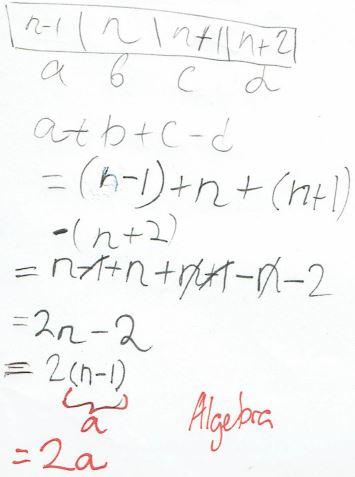 n-1 | n | n+1 | n+2
a b c d
a+b+c-d
= (n-1)+n+(n+1)
-(n+2)
= n-1+n+n+1-n-2
= 2n-2
= 2(n-1)
a Algebra
= 2a